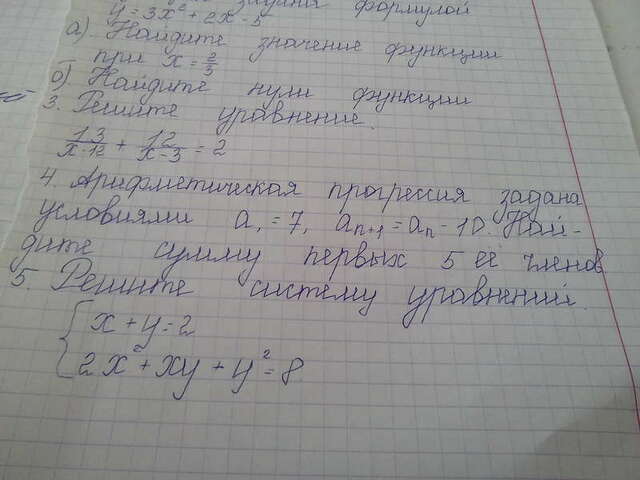 задана формулой
y = 3x² + 2x - 5
а). Найдите значение функции
при x = 2/3
б) Найдите нули функции
3. Решите уравнение.
13/x-12 + 12/x-3 = 2
4. Арифметическая прогрессия задана
условиями a₁ = 7, aₙ₊₁ = aₙ - 10. Най-
дите сумму первых 5 её членов
5. Решите систему уравнений.
x + y = 2
2x² + xy + y² = 8